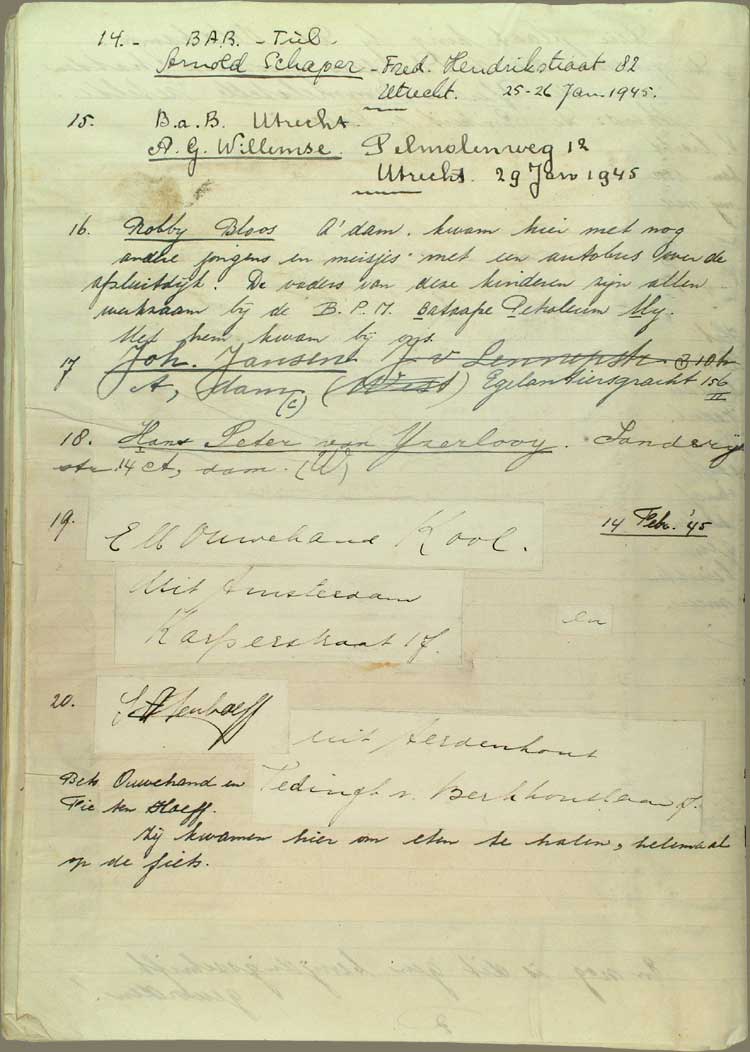 14.- B.A.B. - Tiel-
Arnold Schaper - Fred. Hendrikstraat 82
Utrecht. 25-26 Jan. 1945.
15. B.a.B. Utrecht.
A. G. Willemse. Pelmolenweg 12
Utrecht. 29 Jan 1945
16. Robby Bloos A'dam. kwam hier met nog
andere jongens en meisjes met een autobus over de
afsluitdijk. De vaders van deze kinderen zijn allen
werkzaam bij de B.P.M. Bataafse Petroleum My.
Met hem kwam bij ons.
17 Joh. Jansen. J. v Lennepstr. 310 h
A, dam (West) Egelantiersgracht 156 II
(C)
18. Hans Peter van IJzerlooy. Sandwij
str. 14 A, dam. (W)
19. E M Ouwehand Kool. 14 Febr. '45
Uit Amsterdam
en
Karperstraat 17.
20.
uit Aerdenhout
Bets Ouwehand en Tedingh v. Berkhoutlaan 7.
Pie ten Hoeff.
Zij kwamen hier om eten te halen, helemaal
op de fiets.